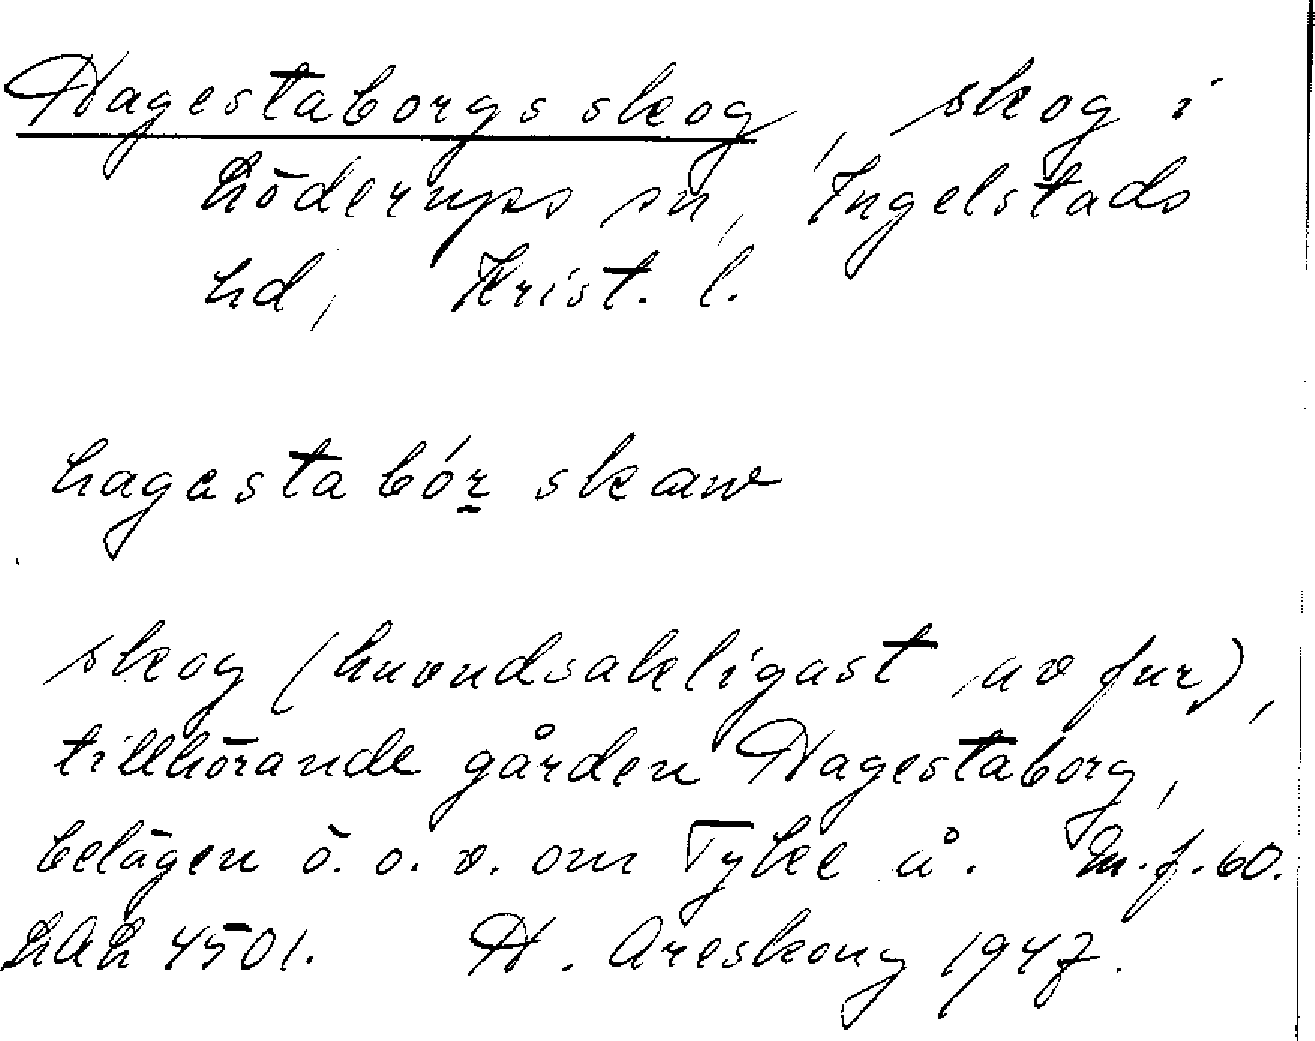 Hagestaborgs skog, skog i
Löderups sn, Ingelstads
hd, Krist. l.
hagasta bór skaw
skog (huvudsakligast av fur),
tillhörande gården Hagestaborg,
belägen ö. o. v. om Tyke å. M.f.60.
LAL 4501. H. Areskoug 1947.